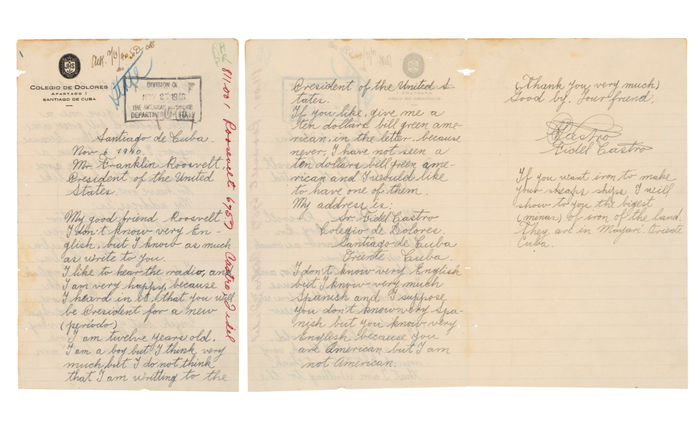 COLEGIO DE DOLORES
APARTADO 1
SANTIAGO DE CUBA
State
DIVISION
DEPARTMENT
811.001 Roosevelt 6757 Castro Fidel
Santiago de Cuba.
Nov. 6 1940.
Mr. Franklin Roosevelt,
President of the United
States.
My good friend Roosevelt
I don't know very En-
glish, but I know as much
as write to you.
I like to hear the radio, and
I am very happy, because
I heard in it, that you will
be President for a new
(periodo)
I am twelve years old.
I am a boy but I think very
much but I do not think
that I am writting to the
President of the United S-
tates.
If you like, give me a
ten dollars bill green ame-
rican, in the letter, because
never, I have not seen a
ten dollars bill green ame-
rican and I would like
to have one of them.
My address is:
Sr. Fidel Castro
Colegio de Dolores
Santiago de Cuba
Oriente Cuba.
I don't know very English
but I know very much
Spanish and I suppose
you don't know very Spa-
nish but you know very
English because you
are American but I am
not American.
(Thank you very much)
Good by. Your friend,
Castro
Fidel Castro
If you want iron to make
your sheaps ships I will
show to you the bigest
(minas) of iron of the land.
They are in Mayarí Oriente
Cuba.